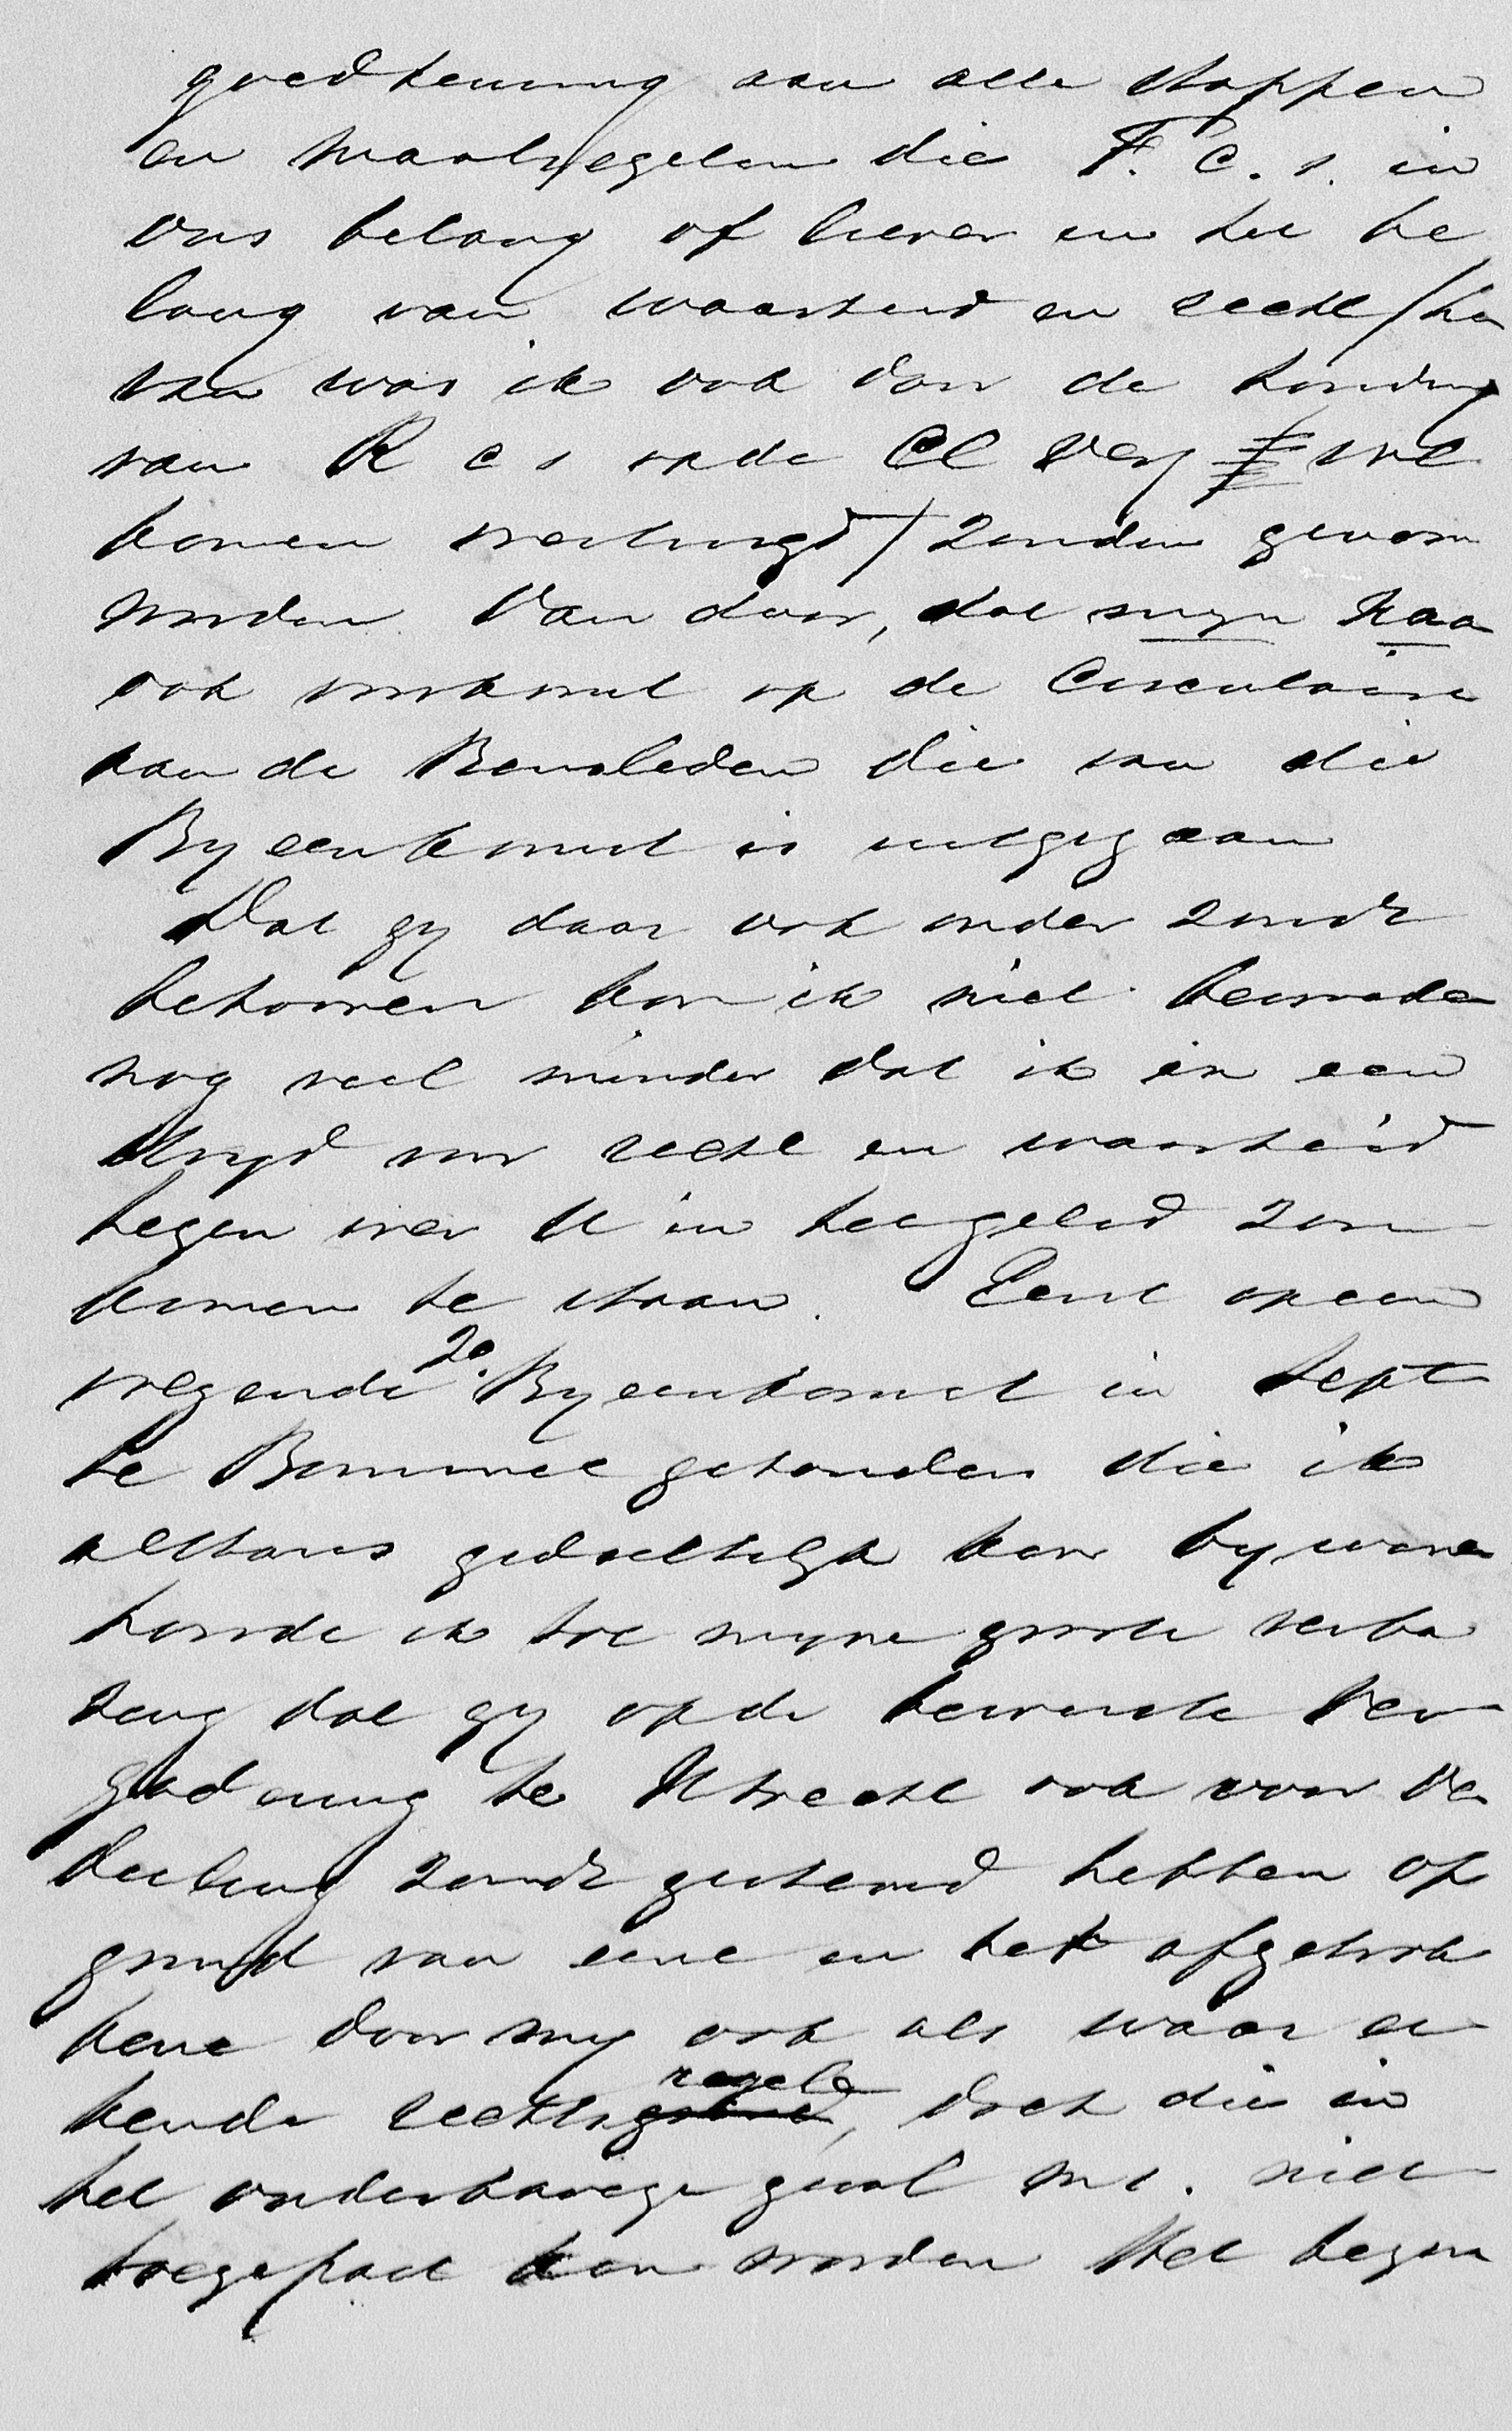 goedkeuring aan alle stappen
en maatregelen die F. c. s. in
ons belang of liever in het be
lang van waarheid en recht / her
van was ik ook van de houding
van R c s op de Cl Verg vol
komen overtuigd / zouden genom
worden Van daar, dat mijn naa
ook voorkomt op de Circulaire
aan de Bewoleden die van die
Byeenkomst is uitgegaan
Dat gy daar ook onder zoudt
behooren kon ik niet bevroeden
nog veel minder dat ik in een
stryd voor recht en waarheid
tegen over U in het gelid zou
komen te staan. Eerst op een
volgende 2e. Byeenkomst in Sept
te Bommel gehouden die ik
althans gedeeltelyk kon bywonen
hoorde ik tot myne groote verba
zing dat gy op de bewuste Ver
gadering te Utrecht ook voor Ver
deeling zoudt gestemd hebben op
grond van eene en het afgetrok
kene door my ook als waar er
kende rechtsregel, doch die in
het onderhavige geval m. i. niet
toegepast kon worden Het begin